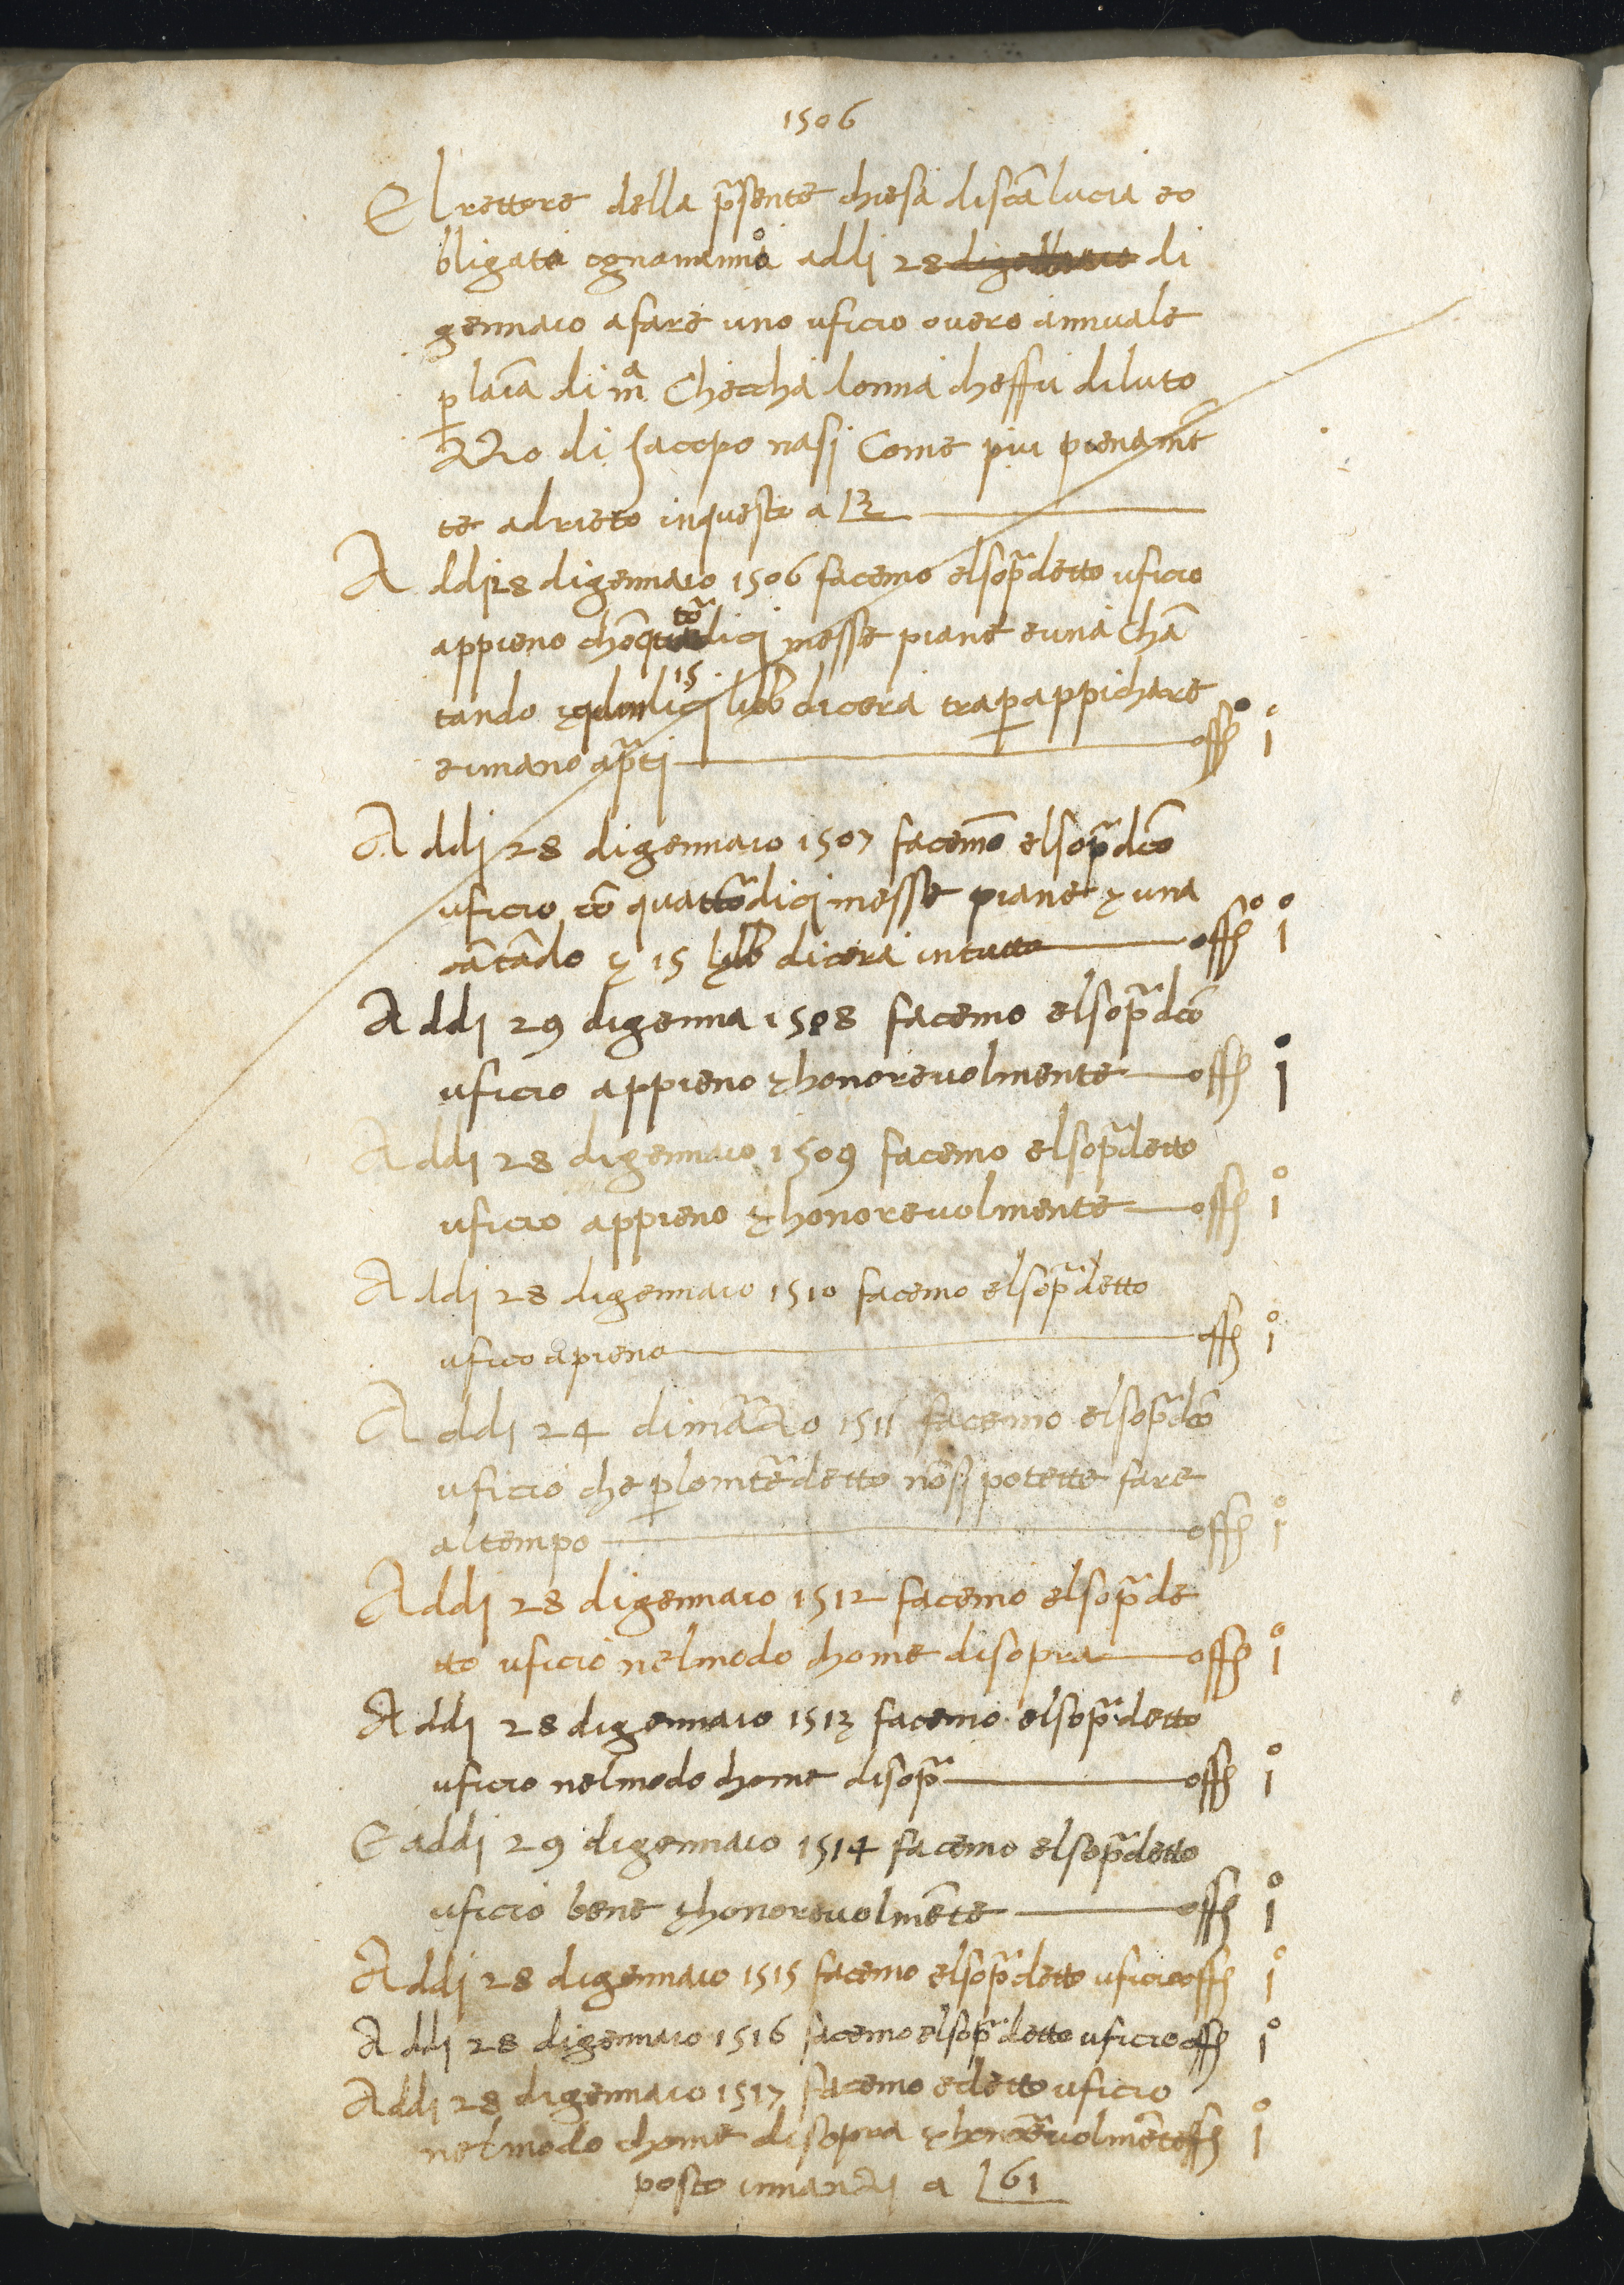 1506
El rettore della p̄sente chiesa di sc̄a lucia e o
bligato ogn anno addi 28 di gennaio di
gennaio a fare uno uficio overo annuale
p laīa di mᵃ Checcha donna cheffu di luto
zzo di Jacopo nasi Come piu pienamēt
te adrieto in questo a 12
Addi 28 di gennaio 1506 facemo el sop̄a detto uficio
appieno chō quatōdici messe piane e una chā
tando 15 libb di cera tra p appichare
e in mano a p̄ti off 1°
Addi 28 di gennaio 1507 facemō el sop̄a dc̄o
uficio cō quattōdici messe piane & una
cātādo & 15 libb di cera in tutto off° 1°
Addi 29 di genna 1508 facemo el sop̄a dc̄o
uficio appieno & honorevolmente off 1°
Addi 28 di gennaio 1509 facemo el sop̄a detto
uficio appieno & honorevolmente off 1°
Addi 28 di gennaio 1510 facemo el sop̄a detto
uficio apieno off 1°
Addi 24 di māzo 1511 facemo el sop̄a dc̄o
uficio che p lo intēdetto nō si potette fare
al tempo off 1°
Addi 28 di gennaio 1512 facemo el sop̄a de
tto uficio nel modo chome di sopra off 1°
Addi 28 di gennaio 1513 facemo el sop̄a detto
uficio nel modo chome di sop̄a off 1°
E addi 29 di gennaio 1514 facemo el sop̄a detto
uficio bene & honorevolmēte off 1°
Addi 28 di gennaio 1515 facemo el sop̄a detto uficio off 1°
Addi 28 di gennaio 1516 facemo el sop̄a detto uficio off 1°
Addi 28 di gennaio 1517 facemo e detto uficio
nel modo chome di sopra & honōevolmēte off 1°
posto innanzi a 61